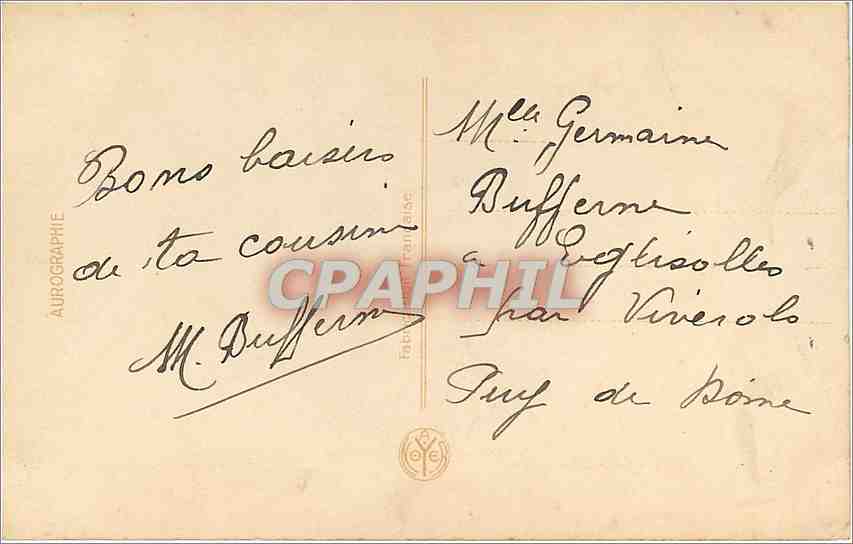 Bons baisers
de ta cousine
M. Bufferne
Mlle Germaine
Bufferne
a Eglisolles
par Viverols
Puy de Dôme
AUROGRAPHIE
Fabrication Française
CPAPHIL